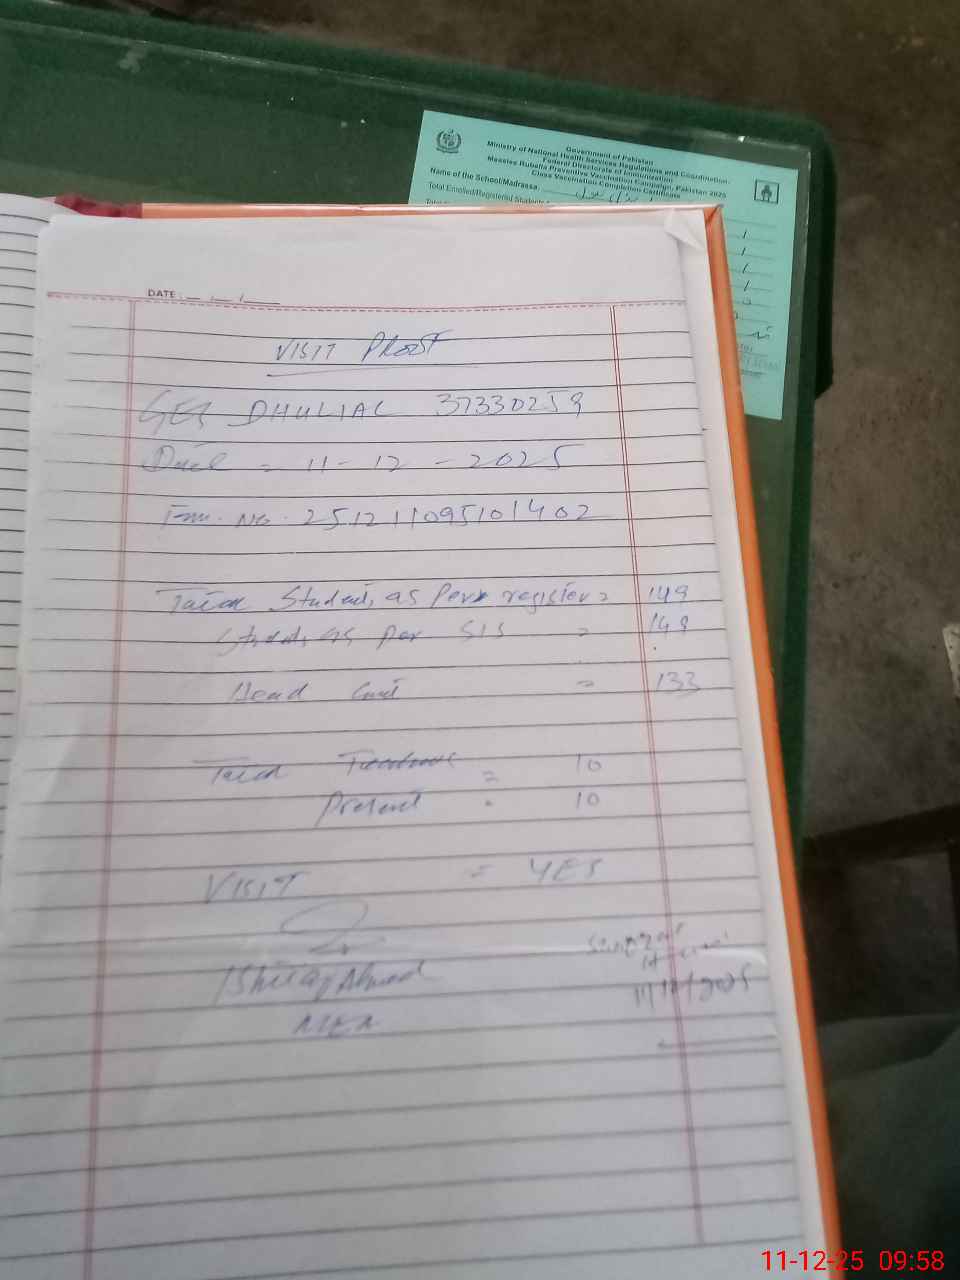 Government of Pakistan
Ministry of National Health Services Regulations and Coordination
Federal Directorate of Immunization
Measles Rubella Preventive Vaccination Campaign, Pakistan 2025
Class Vaccination Completion Certificate
Name of the School/Madrassa
Total Enrolled/Registered Students
DATE :
VISIT PROOF
GES DHULIAL 37330259
Date = 11-12-2025
No. 251211095101402
Total Students as Per register = 149
Students as per SIS = 149
Head Count = 133
Total Teachers = 10
Present = 10
VISIT = YES
Ahmad
MEA
11/12/2025
11-12-25 09:58